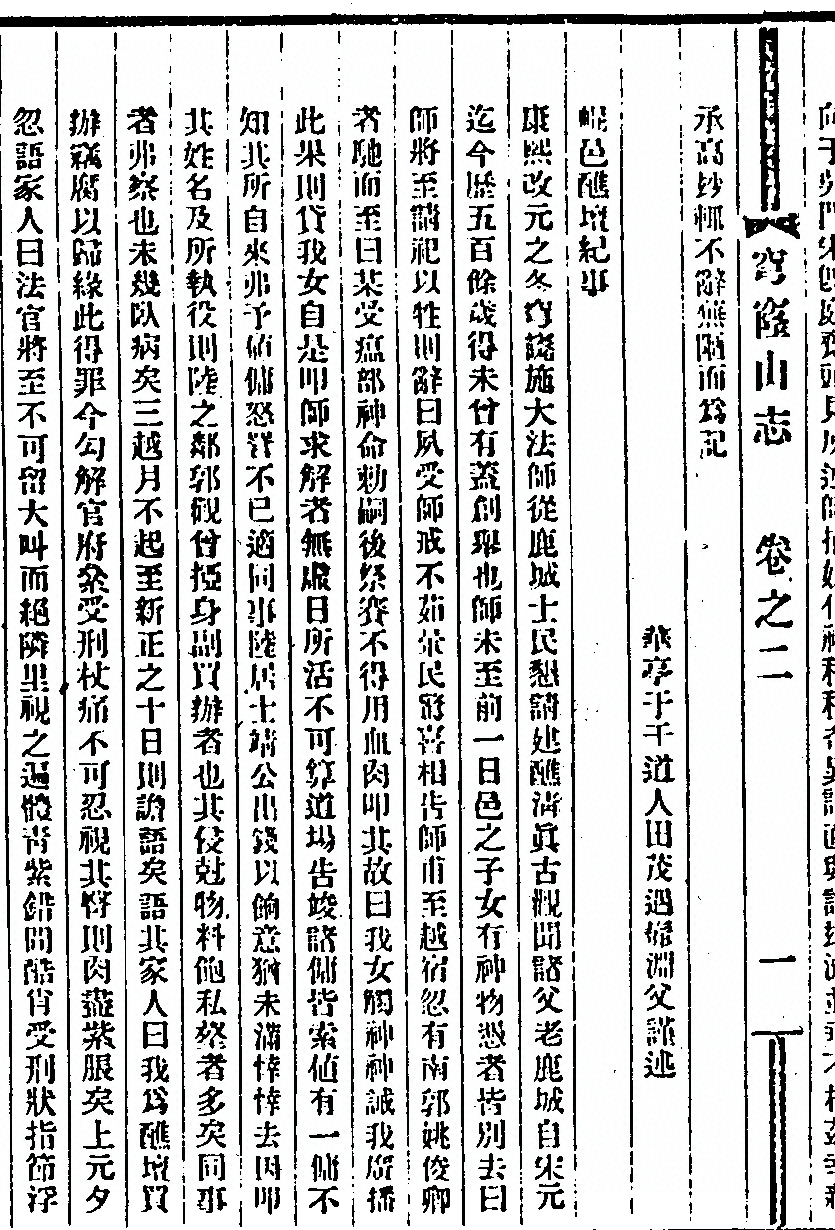 承高抄概不辭蕪陋而爲記
穹窿山志 卷之二 一
華亭于于道人田茂遇髴淵父謹述
崐邑醮壇紀事
康熙改元之冬穹窿施大法師從鹿城士民懇請建醮淸眞古觀聞諸父老鹿城自宋元
迄今歷五百餘歲得未曾有蓋創舉也師未至前一日邑之子女有神物憑者皆別去曰
師將至請祀以牲則辭曰夙受師戒不茹葷民驚喜相告師甫至越宿忽有南郭姚俊卿
者馳而至曰某受瘟部神命勅嗣後祭賽不得用血肉叩其故曰我女觸神神誠我廣播
此果則貸我女自是叩師求解者無虛日所活不可算道場告竣諸傭皆索値有一傭不
知其所自來弗予値傭怒詈不已適同事陸居士靖公出錢以餉意猶未滿悻悻去因叩
其姓名及所執役則陸之鄰郭觀曾掗身副買辦者也其侵尅物料飽私槖者多矣同事
者弗察也未幾臥病矣三越月不起至新正之十日則譫語矣語其家人曰我爲醮壇買
辦竊腐以歸緣此得罪今勾解官府桼受刑杖痛不可忍視其臀則肉盡紫脹矣上元夕
忽語家人曰法官將至不可留大叫而絕隣里視之遍體靑紫鉛悶酷肖受刑狀指節浮